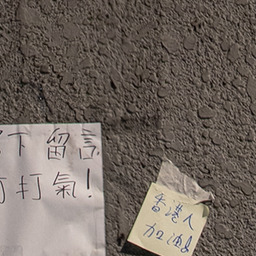 下留言
打氣!
香港人
加油